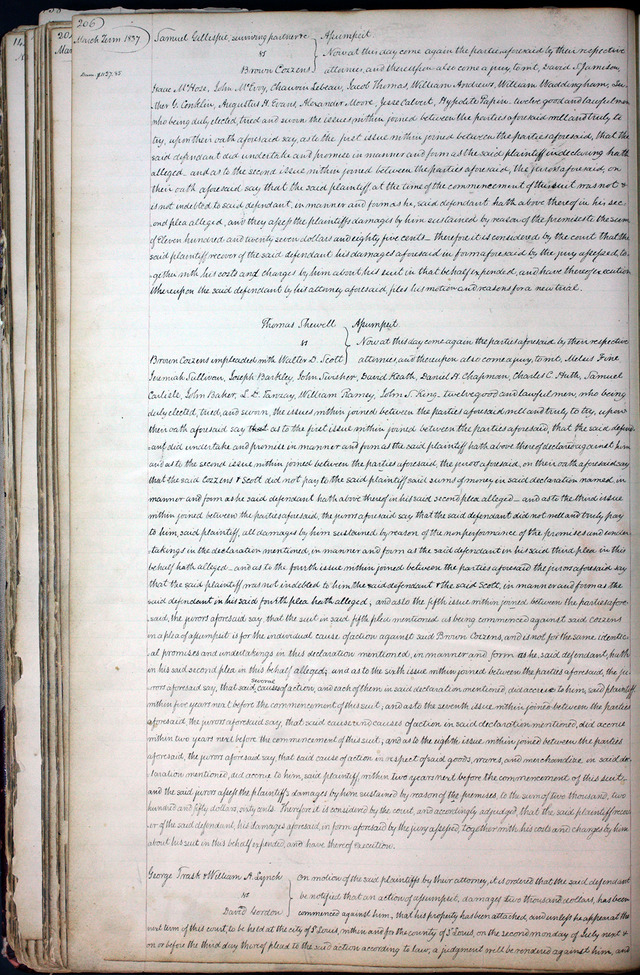 206
March Term 1837
Dam $1127.85
Samuel Gillespie, surviving partner &c
vs
Brown Cozzens
Assumpsit.
Now at this day come again the parties aforesaid by their respective
attornies, and thereupon also come a jury, to wit, David S. Jamison,
Isaac McHose, John McEvoy, Chauvin Lebeau, Jacob Thomas, William Andrews, William Waddingham, Lu-
ther G. Conklin, Augustus H. Evans, Alexander Moore, Jesse Calvert, Hypolite Papin twelve good and lawful men
who being duly elected, tried and sworn the issues within joined between the parties aforesaid well and truly to
try, upon their oath aforesaid say, as to the first issue within joined between the parties aforesaid, that the
said defendant did undertake and promise in manner and form as the said plaintiff in declaring hath
alleged— and as to the second issue within joined between the parties aforesaid, the jurors aforesaid, on
their oath aforesaid say that the said plaintiff at the time of the commencement of this suit was not &
is not indebted to said defendant, in manner and form as he, said defendant hath above thereof in his sec-
ond plea alleged, and they assess the plaintiffs damages by him sustained by reason of the premises to the sum
of Eleven hundred and twenty seven dollars and eighty five cents— therefore it is considered by the court that the
said plaintiff recover of the said defendant his damages aforesaid in form aforesaid by the jury assessed, to-
gether with his costs and charges by him about his suit in that behalf expended, and have thereof execution
Whereupon the said defendant by his attorney aforesaid, files his motion and reasons for a new trial.
Thomas Shewell
vs
Brown Cozzens impleaded with Walter D. Scott
Assumpsit
Now at this day come again the parties aforesaid by their respective
attornies, and thereupon also come a jury, to wit, Melsis Fine
Jeremiah Sullivan, Joseph Barkley, John Swisher, David Heath, Daniel H. Chapman, Charles C. Huth, Samuel
Carlisle, John Baker, L. D. William Ramey, John T. King, twelve good and lawful men, who being
duly elected, tried, and sworn, the issues within joined between the parties aforesaid well and truly to try, upon
their oath aforesaid say that as to the first issue within joined between the parties aforesaid, that the said defend-
ant did undertake and promise in manner and form as the said plaintiff hath above thereof declared against him
and as to the second issue within joined between the parties aforesaid, the jurors aforesaid, on their oath aforesaid say
that the said Cozzens & Scott did not pay to the said plaintiff said sums of money in said declaration named, in
manner and form as he said defendant hath above thereof in his said second plea alleged— and as to the third issue
within joined between the parties aforesaid, the jurors aforesaid say that the said defendant did not well and truly pay
to him, said plaintiff, all damages by him sustained by reason of the nonperformance of the promises and under-
takings in the declaration mentioned, in manner and form as the said defendant in his said third plea in this
behalf hath alleged— and as to the fourth issue within joined between the parties aforesaid the jurors aforesaid say
that the said plaintiff was not indebted to him, the said defendant & the said Scott, in manner and form as the
said defendant in his said fourth plea hath alleged; and as to the fifth issue within joined between the parties afore-
said, the jurors aforesaid say, that the suit in said fifth plea mentioned as being commenced against said Cozzens
in a plea of assumpsit is for the individual cause of action against said Brown Cozzens, and is not for the same identic-
al promises and undertakings in this declaration mentioned, in manner and form as he, said defendant, hath
in his said second plea in this behalf alleged; and as to the sixth issue within joined between the parties aforesaid, the ju-
rors aforesaid say, that said several causes of action, and each of them in said declaration mentioned, did accrue to him, said plaintiff
within five years next before the commencement of this suit; and as to the seventh issue within joined between the parties
aforesaid, the jurors aforesaid say, that said cause and causes of action in said declaration mentioned, did accrue
within two years next before the commencement of this suit; and as to the eighth issue within joined between the parties
aforesaid, the jurors aforesaid say, that said cause of action in respect of said goods, wares, and merchandize in said dec-
laration mentioned, did accrue to him, said plaintiff, within two years next before the commencement of this suit,
and the said jurors assess the plaintiff's damages by him sustained by reason of the premises, to the sum of two thousand, two
hundred and fifty dollars, sixty cents. Therefore it is considered by the court, and accordingly adjudged, that the said plaintiff recov-
er of the said defendant, his damages aforesaid, in form aforesaid by the jury assessed, together with his costs and charges by him
about his suit in this behalf expended, and have thereof execution.
George Trask & William A. Lynch
vs
David Gordon
On motion of the said plaintiffs by their attorney, it is ordered that the said defendant
be notified that an action of assumpsit, damages two thousand dollars, has been
commenced against him, that his property has been attached, and unless he appear at the
next term of this court, to be held at the city of St Louis, within and for the county of St Louis, on the second monday of July next &
on or before the third day thereof plead to the said action according to law, a judgment will be rendered against him, and